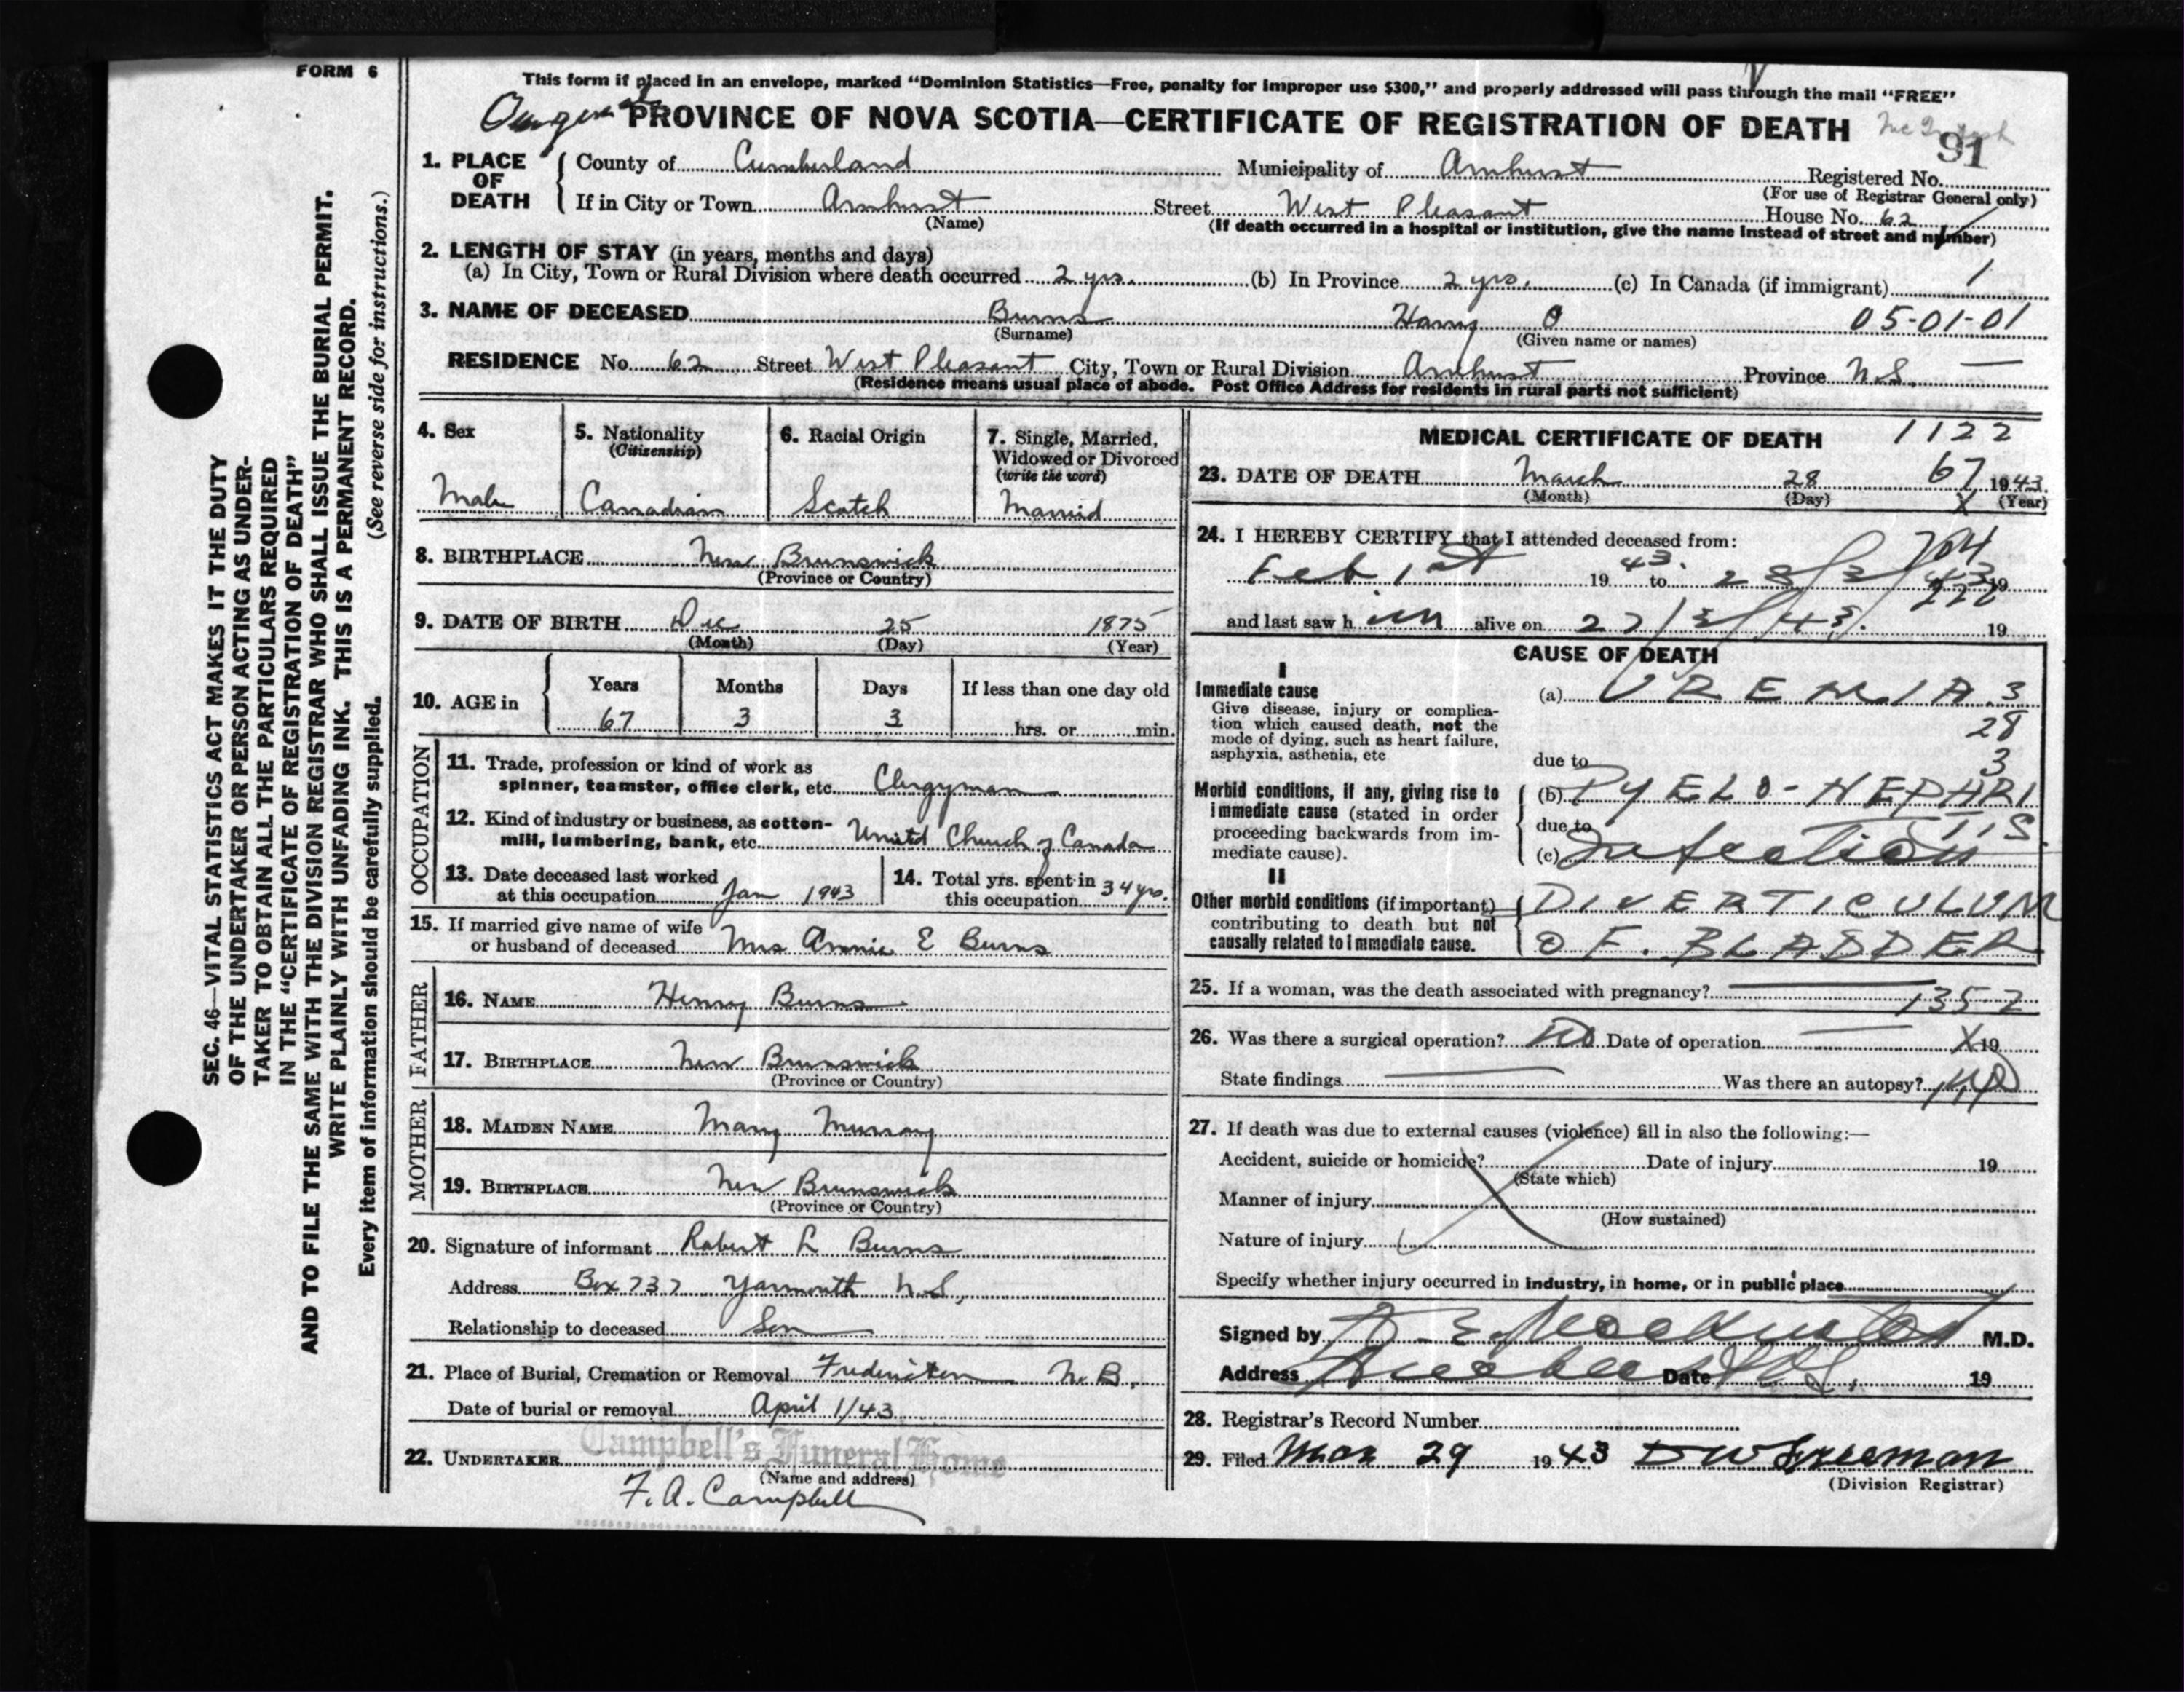 FORM 6
This form if placed in an envelope, marked "Dominion Statistics—Free, penalty for improper use $300," and properly addressed will pass through the mail "FREE"
PROVINCE OF NOVA SCOTIA—CERTIFICATE OF REGISTRATION OF DEATH
91
1. PLACE OF DEATH
County of Cumberland Municipality of Amherst Registered No.
(For use of Registrar General only)
If in City or Town Amherst Street West Pleasant House No. 62
(Name) (If death occurred in a hospital or institution, give the name instead of street and number)
2. LENGTH OF STAY (in years, months and days)
(a) In City, Town or Rural Division where death occurred 2 yrs. (b) In Province 2 yrs. (c) In Canada (if immigrant) 1
3. NAME OF DECEASED Burns Harry O 05-01-01
(Surname) (Given name or names)
RESIDENCE No. 62 Street West Pleasant City, Town or Rural Division Amherst Province N.S. —
(Residence means usual place of abode. Post Office Address for residents in rural parts not sufficient)
4. Sex
Male
5. Nationality
(Citizenship)
Canadian
6. Racial Origin
Scotch
7. Single, Married,
Widowed or Divorced
(write the word)
Married
8. BIRTHPLACE New Brunswick
(Province or Country)
9. DATE OF BIRTH Dec 25 1875
(Month) (Day) (Year)
10. AGE in
Years Months Days If less than one day old
67 3 3 hrs. or min.
OCCUPATION
11. Trade, profession or kind of work as
spinner, teamster, office clerk, etc. Clergyman
12. Kind of industry or business, as cotton-
mill, lumbering, bank, etc. United Church of Canada
13. Date deceased last worked
at this occupation Jan 1943
14. Total yrs. spent in
this occupation 34 yrs.
15. If married give name of wife
or husband of deceased Mrs Annie E Burns
FATHER
16. NAME Henry Burns
17. BIRTHPLACE New Brunswick
(Province or Country)
MOTHER
18. MAIDEN NAME Mary Murray
19. BIRTHPLACE New Brunswick
(Province or Country)
20. Signature of informant Robert L Burns
Address Box 737 Yarmouth N.S.
Relationship to deceased Son
21. Place of Burial, Cremation or Removal Fredericton N.B.
Date of burial or removal April 1/43
22. UNDERTAKER Campbell's Funeral Home
(Name and address)
F. A. Campbell
MEDICAL CERTIFICATE OF DEATH 1122
23. DATE OF DEATH March 28 67 1943
(Month) (Day) X (Year)
24. I HEREBY CERTIFY that I attended deceased from:
704
Feb 1st 1943. to 28/3/43 19
and last saw him alive on 27/3/43. 19
CAUSE OF DEATH
I
Immediate cause
Give disease, injury or complica-
tion which caused death, not the
mode of dying, such as heart failure,
asphyxia, asthenia, etc
(a) UREMIA 3
28
3
due to
Morbid conditions, if any, giving rise to
immediate cause (stated in order
proceeding backwards from im-
mediate cause).
(b) PYELO-NEPHRI
TIS.
due to
(c) Infection
II
Other morbid conditions (if important)
contributing to death but not
causally related to immediate cause.
DIVERTICULUM
OF. BLADDER
25. If a woman, was the death associated with pregnancy? — 135-2
26. Was there a surgical operation? No Date of operation — X 19
State findings — Was there an autopsy? No
27. If death was due to external causes (violence) fill in also the following:—
Accident, suicide or homicide? Date of injury 19
(State which)
Manner of injury
(How sustained)
Nature of injury
Specify whether injury occurred in industry, in home, or in public place
Signed by M.D.
Address Date 19
28. Registrar's Record Number
29. Filed Mar 29 1943 D W Freeman
(Division Registrar)
SEC. 46—VITAL STATISTICS ACT MAKES IT THE DUTY
OF THE UNDERTAKER OR PERSON ACTING AS UNDER-
TAKER TO OBTAIN ALL THE PARTICULARS REQUIRED
IN THE "CERTIFICATE OF REGISTRATION OF DEATH"
AND TO FILE THE SAME WITH THE DIVISION REGISTRAR WHO SHALL ISSUE THE BURIAL PERMIT.
WRITE PLAINLY WITH UNFADING INK. THIS IS A PERMANENT RECORD.
Every item of information should be carefully supplied. (See reverse side for instructions.)